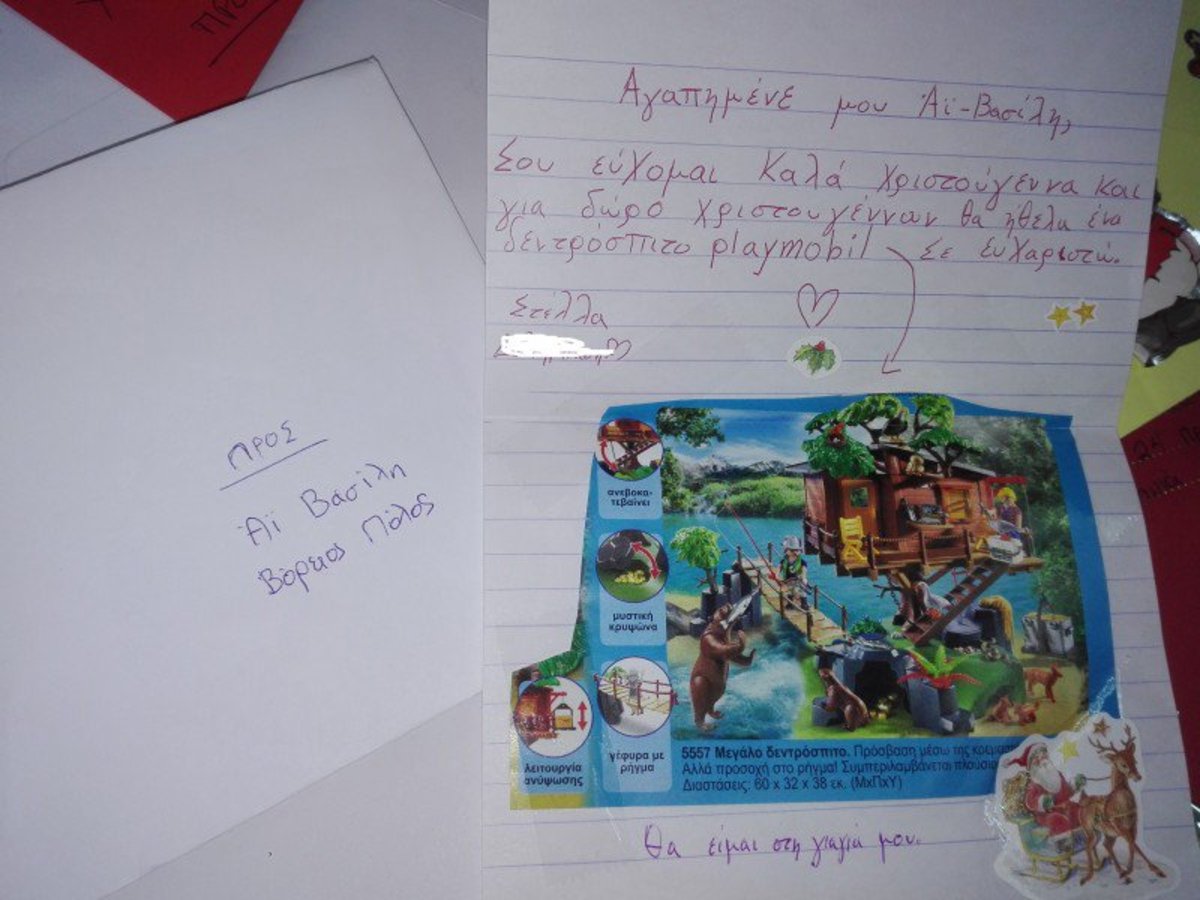 ΠΡΟΣ
Άϊ Βασίλη
Βόρειος Πόλος
Αγαπημένε μου Άϊ-Βασίλη,
Σου εύχομαι Καλά Χριστούγεννα και
για δώρο χριστουγέννων θα ήθελα ένα
δεντρόσπιτο playmobil σε ευχαριστώ.
Στέλλα
ανεβοκα-
τεβαίνει
μυστική
κρυψώνα
λειτουργία
ανύψωσης
γέφυρα με
ρήγμα
5557 Μεγάλο δεντρόσπιτο. Πρόσβαση μέσω της
Αλλά προσοχή στο ρήγμα! Συμπεριλαμβάνεται
Διαστάσεις: 60 x 32 x 38 εκ. (ΜxΠxΥ)
Θα είμαι στη γιαγιά μου.